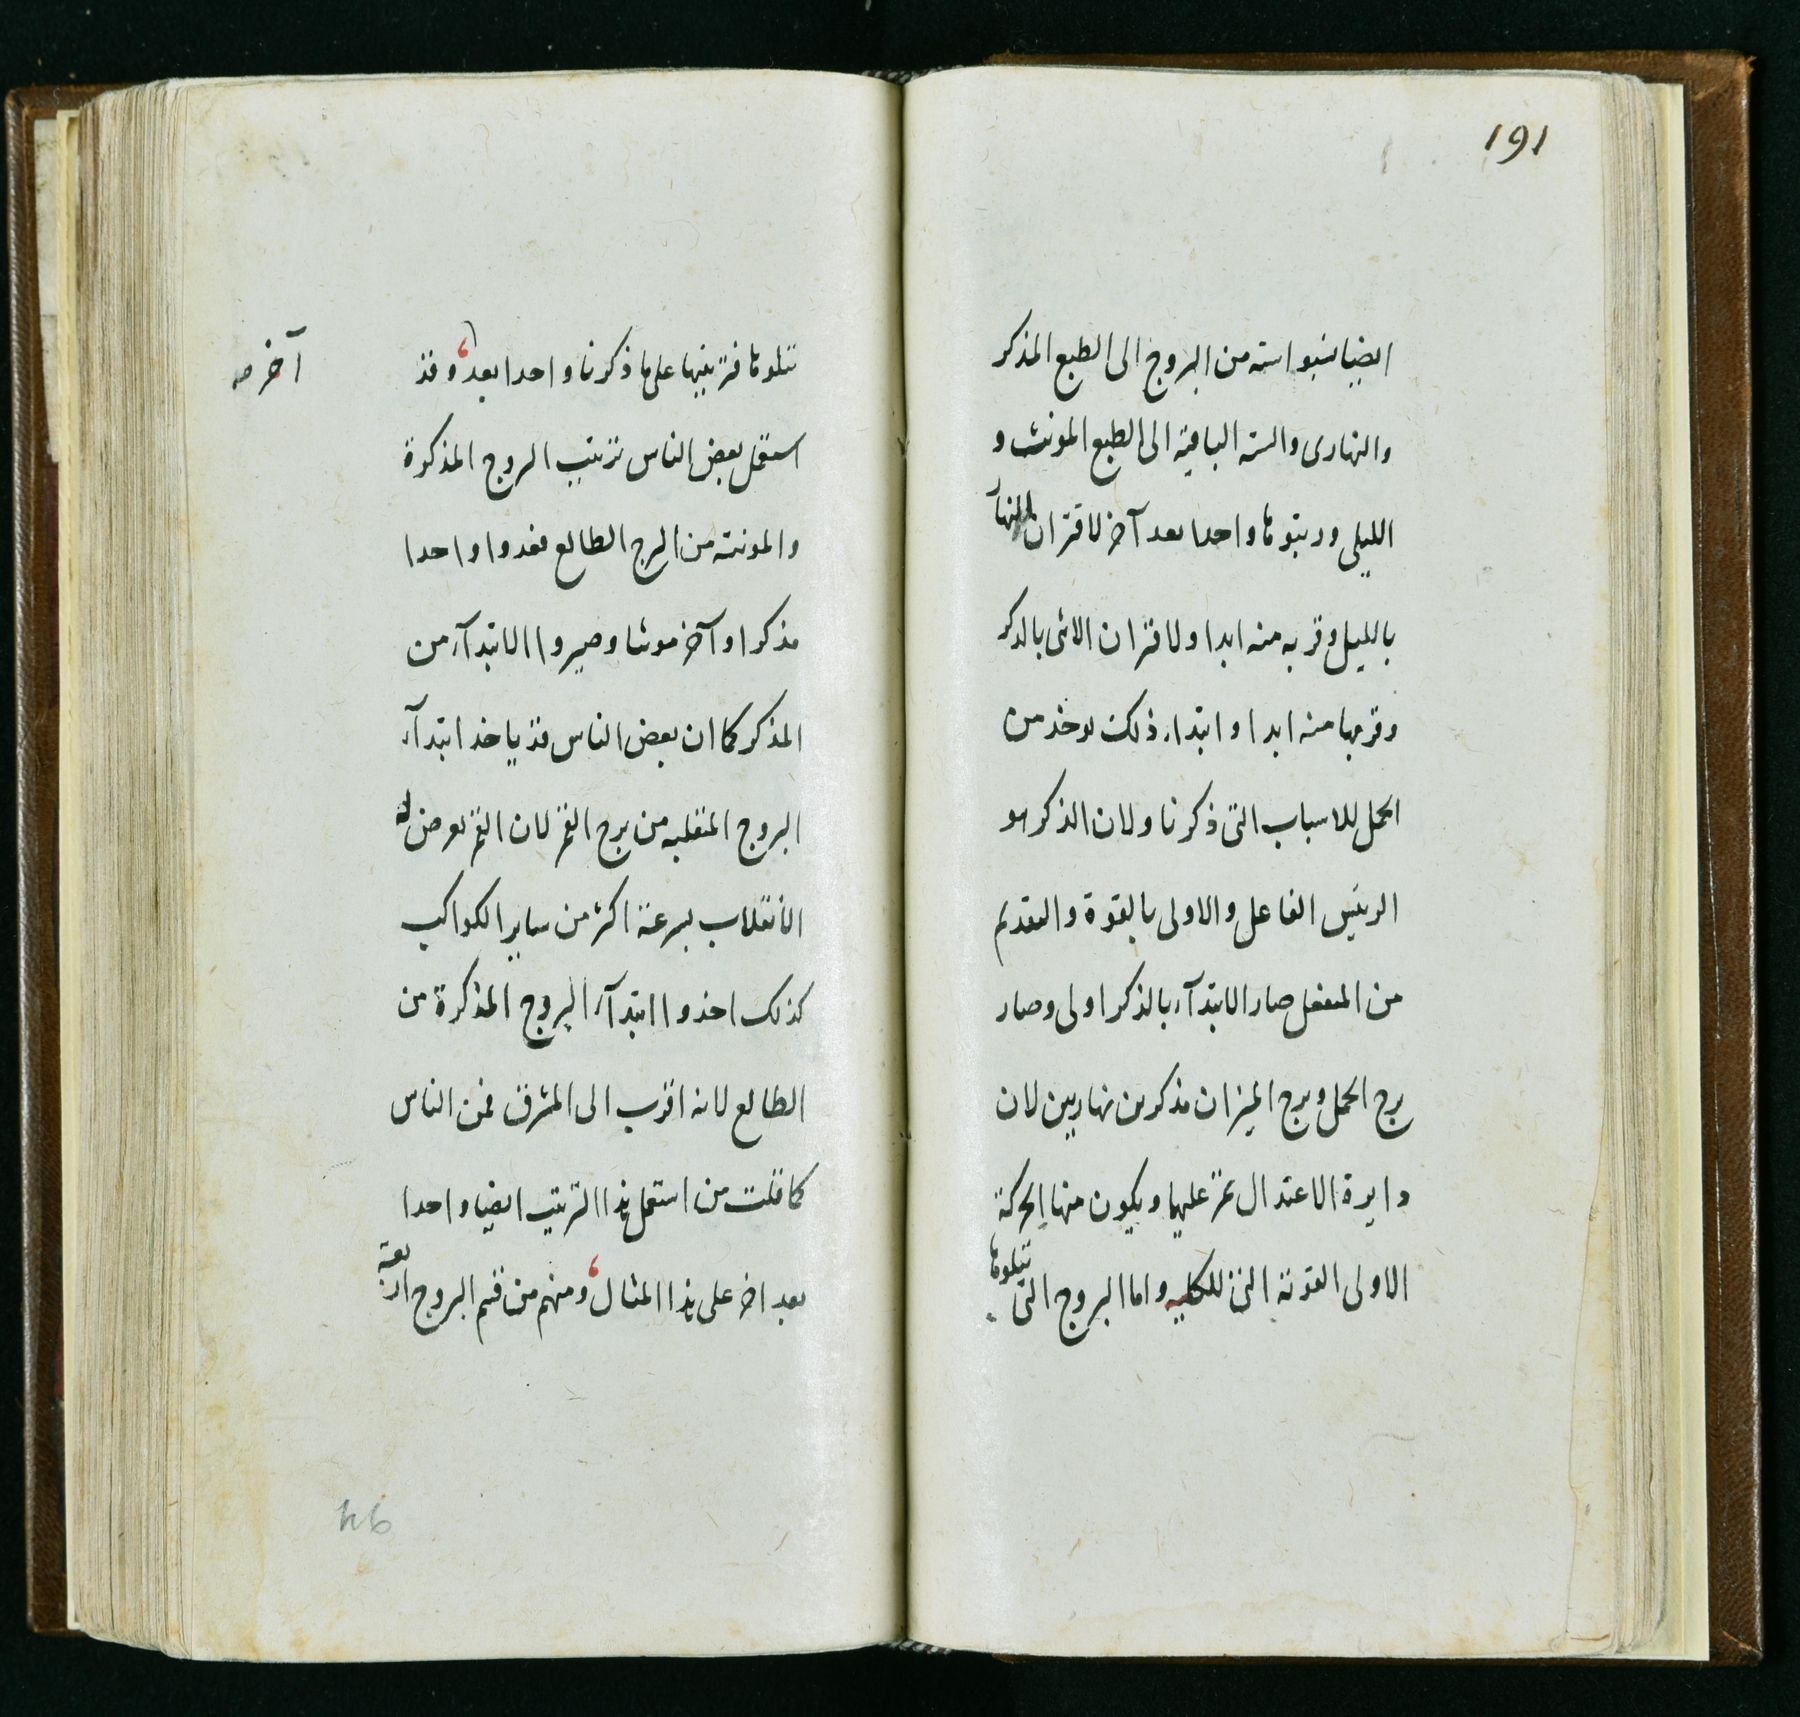 191
ايضا نسبوا ستة من البروج الى الطبع المذكر
والنهارى والستة الباقية الى الطبع المونث و
الليلى ورتبوها واحدا بعد آخر لاقتران النهار
بالليل وقربه منه ابدا ولاقتران الانثى بالذكر
وقربها منه ابدا وابتداء ذلك يوخذ من
الحمل للاسباب التى ذكرنا ولان الذكر هو
الرئيس الفاعل والاولى بالقوة والتقديم
من المنفعل صار الابتدآء بالذكر اولى وصار
برج الحمل وبرج الميزان مذكرين نهاريين لان
دايرة الاعتدال تمر عليها ويكون منها الحركة
الاولى القوية التى للكلية واما البروج التى تتلوها
تتلوها فترتيبها على ما ذكرنا واحدا بعد وقد
آخر صح
استعمل بعض الناس ترتيب البروج المذكرة
والمونثة من البرج الطالع فعدوا واحدا
مذكرا وآخر مونثا وصيروا الابتدآء من
المذكر كما ان بعض الناس قد ياخذ ابتدآء
البروج المنقلبه من برج القمر لان القمر يعرض له
الانقلاب بسرعة اكثر من ساير الكواكب
كذلك اخذوا ابتدآء البروج المذكرة من
الطالع لانه اقرب الى المشرق فمن الناس
كما قلت من استعمل هذا الترتيب ايضا واحدا
بعد اخر على هذا المثال ومنهم من قسم البروج اربعة